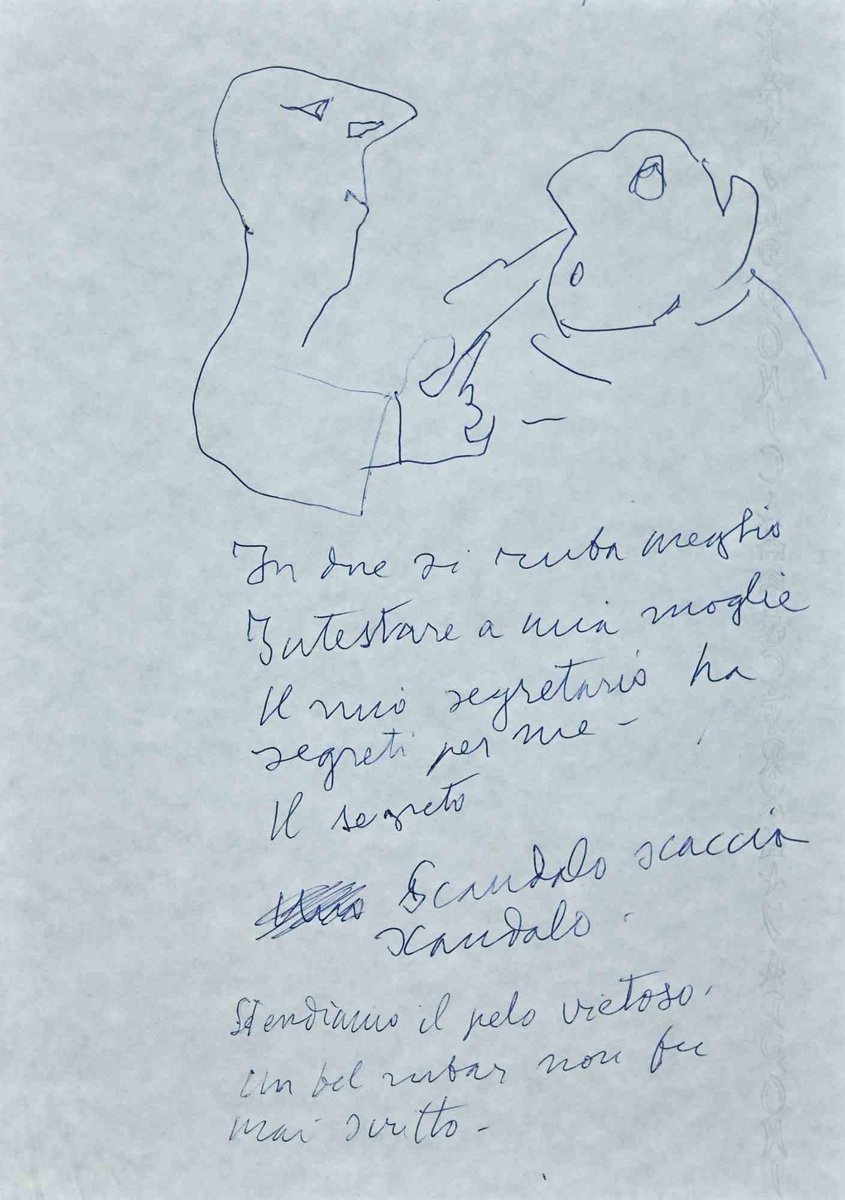 In due si ruba meglio
Intestare a mia moglie
Il mio segretario ha
segreti per me -
Il segreto
Scandalo scaccia
scandalo.
Stendiamo il pelo vietoso.
Un bel rubar non fu
mai scritto. -